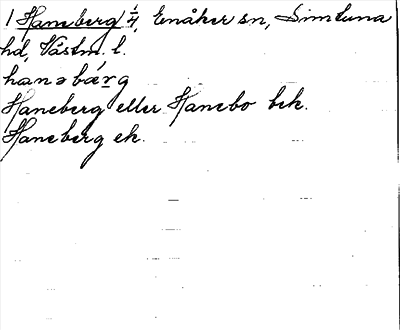 1 Haneberg 1/4, Enåker sn, Simtuna
hd, Västm. l.
hanəbærg
Haneberg eller Hanebo bek.
Haneberg ek.